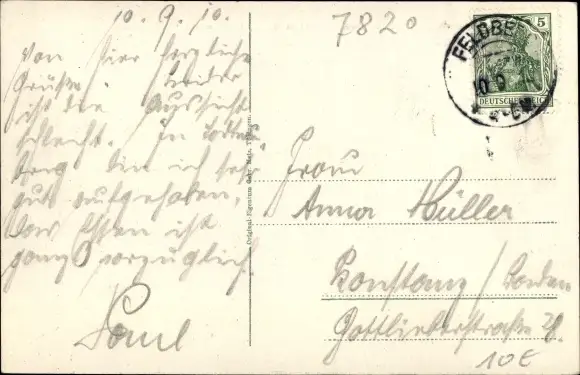 10. 9. 10.
Von hier herzliche
Grüße. Leider
ist die Aussicht
schlecht. In Todtnau
berg bin ich sehr
gut aufgehoben,
das Essen ist
ganz vorzüglich.
Paul
7820
FELDBE
10.9.
5
DEUTSCHES REICH
Original-Eigentum Gebr. Metz, Tübingen.
Frau
Anna Müller
Konstanz / Baden
Gottlieberstraße 28.
10€